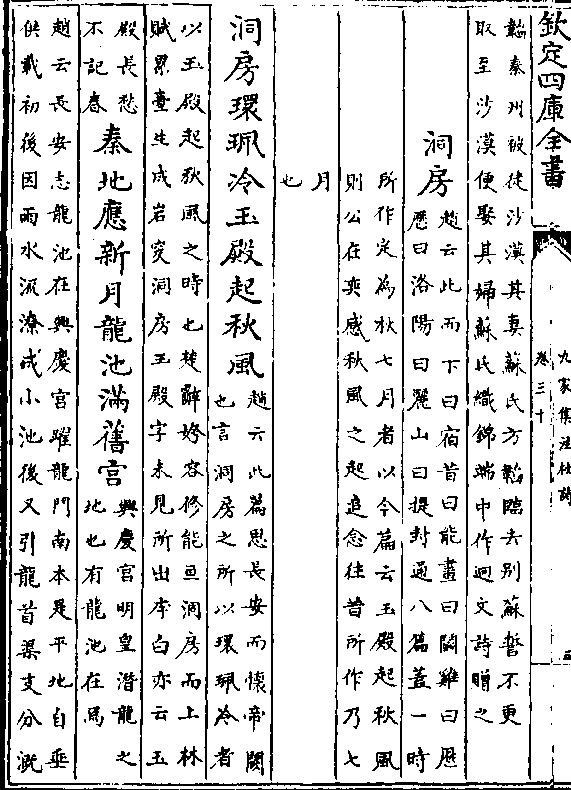 欽定四庫全書
九家集注杜詩
卷三十
五
韜秦州被徒沙漠其妻蘇氏方韜臨去別蘇誓不更
取至沙漠便娶其婦蘇氏織錦端中作迴文詩贈之
洞房
趙云此而下曰宿昔曰能畫曰鬬雞曰歷
歷曰洛陽曰麗山曰提封通八篇蓋一時
所作定為秋七月者以今篇云玉殿起秋風
則公在夔感秋風之起追念往昔所作乃七
月
也
洞房環珮冷玉殿起秋風
趙云此為思長安而懷帝闕
也言洞房之所以環珮冷者
以玉殿起秋風之時也楚辭姱容修能亘洞房而上林
賦累臺生成岩窔洞房玉殿字未見所出李白亦云玉
殿長愁
不記春
秦地應新月龍池滿舊宮
興慶宮明皇潛龍之
地也有龍池在焉
趙云長安志龍池在興慶宮躍龍門南本是平地自垂
供載初後因雨水流潦成小池後又引龍首渠支分溉